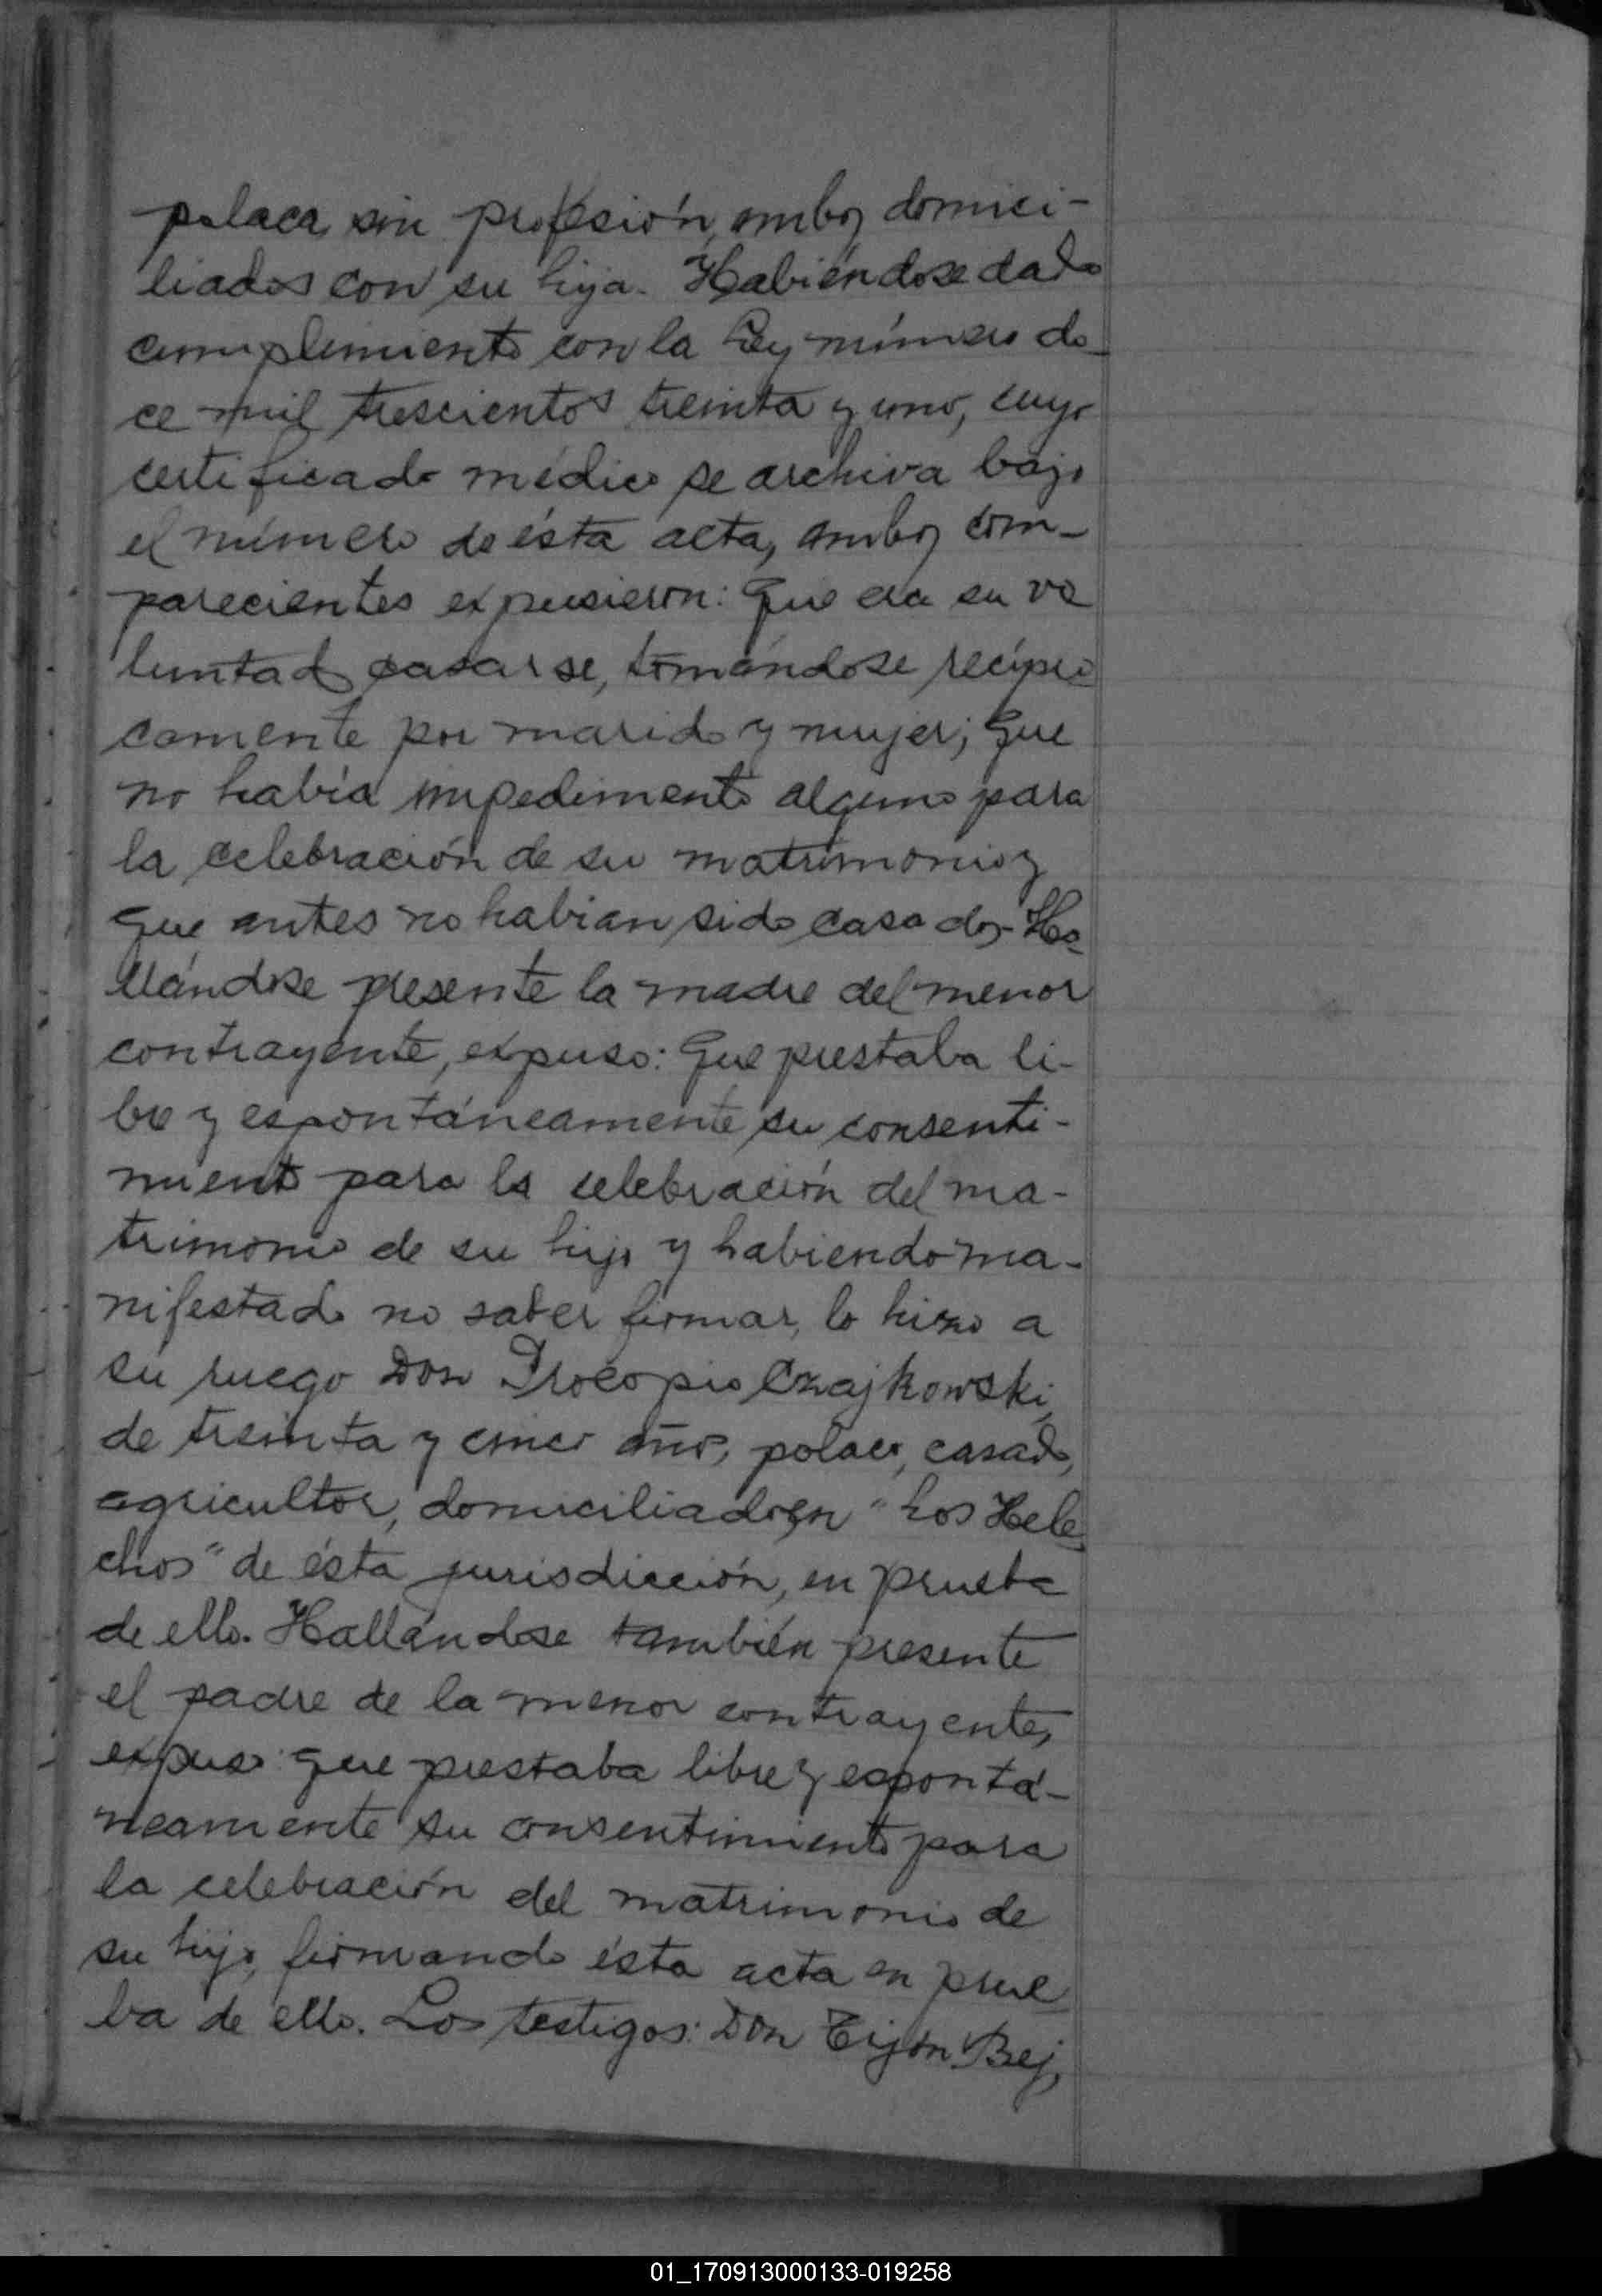 polaca, sin profesión, ambos domici-
liados con su hija. Habiéndose dado
cumplimiento con la Ley número do-
ce mil trescientos treinta y uno, cuyo
certificado médico se archiva bajo
el número de ésta acta, ambos com-
parecientes expusieron: Que era su vo
luntad casarse, tomándose recípro
camente por marido y mujer; que
no había impedimento alguno para
la celebración de su matrimonio y
que antes no habian sido casados- Ha
llándose presente la madre del menor
contrayente, expuso: Que prestaba li-
bre y espontáneamente su consenti-
miento para la celebración del ma-
trimonio de su hijo y habiendo ma-
nifestado no saber firmar, lo hizo a
su ruego Don Procopio Czajkowski,
de treinta y cinco años, polaco, casado,
agricultor, domiciliado en "Los Hele
chos" de ésta jurisdicción, en prueba
de ello. Hallándose también presente
el padre de la menor contrayente,
expuso: que prestaba libre y espontá-
neamente su consentimiento para
la celebración del matrimonio de
su hija, firmando ésta acta en prue
ba de ello. Los testigos: Don Bej,
01_170913000133-019258